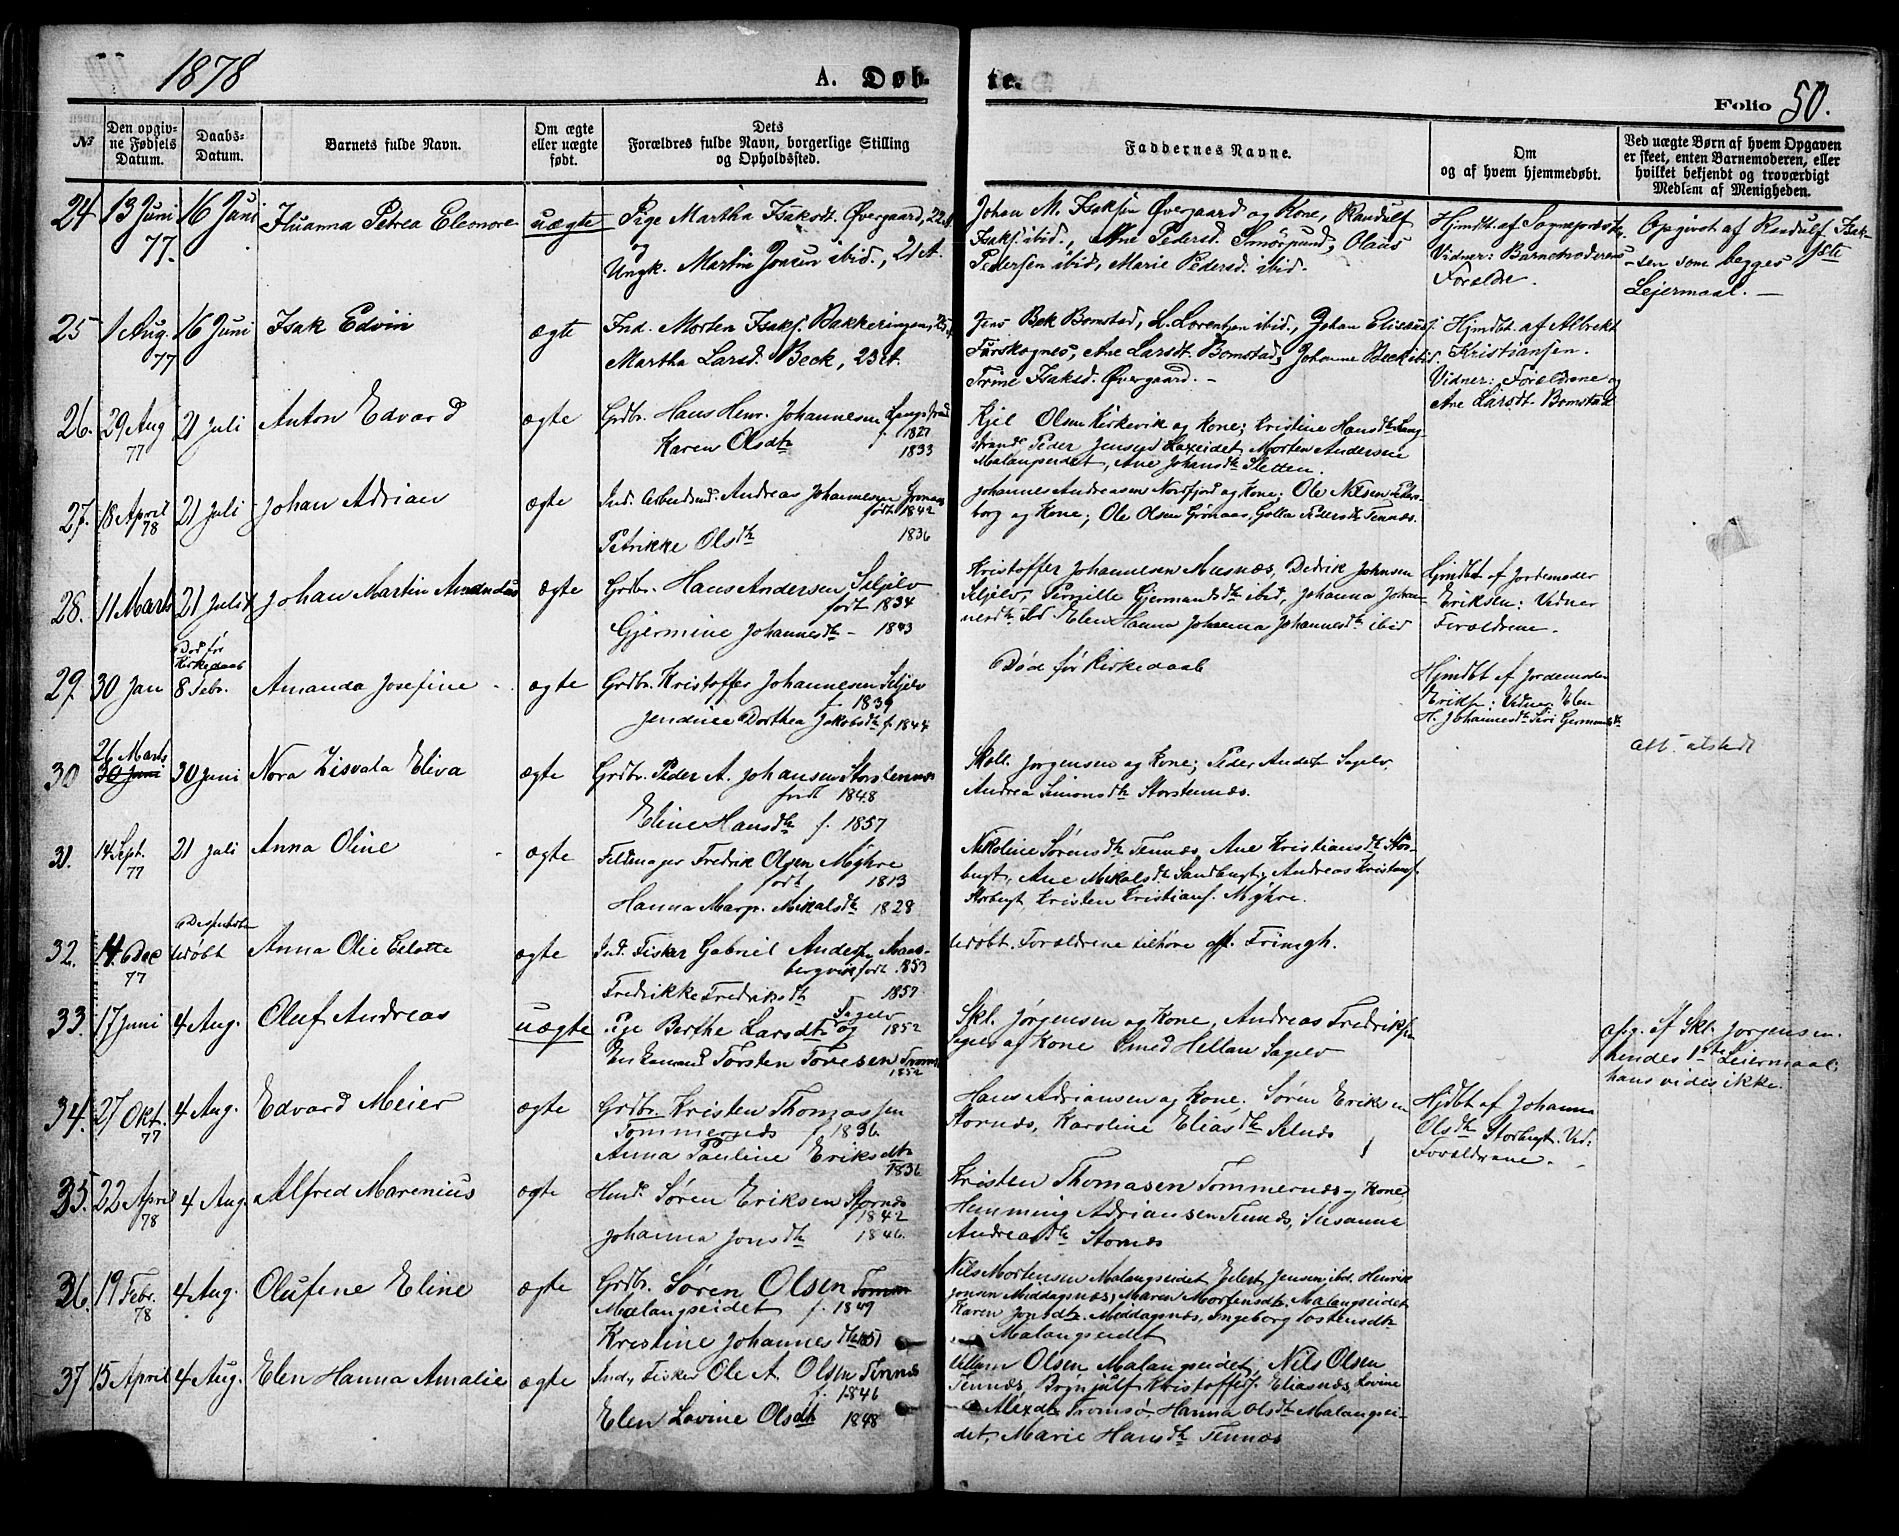 1878
A. Døb-
te.
Folio 50.
№
Den opgiv-
ne Fødsels
Datum.
Daabs-
Datum.
Barnets fulde Navn.
Om ægte
eller uægte
født.
Dets
Forældres fulde Navn, borgerlige Stilling
og Opholdssted.
Faddernes Navne.
Om
og af hvem hjemmedøbt.
Ved uægte Børn af hvem Opgaven
er skeet, enten Barnemoderen, eller
hvilket bekjendt og troværdigt
Medlem af Menigheden.
24 13 Juni 16 Juni Petrea Eleonore uægte Pige Martha Isaksdt. Øvergaard, 22
77.
Ungk. Martin Jensen ibid., 21 At.
Johan M. Isaksen Øvergaard og Kone, Randulf
Isaks. ibid., Ane Pedersd. Olaus
Pedersen ibid, Marie Pedersd. ibid.
Hjmdt. af Sognepræsten.
Vidner: Barnemoderens
Forældre.
Opgivet af Randulf Isak-
sen som begges 1ste
Lejermaal. —
25 1 Aug. 16 Juni Isak Edvin ægte Ind. Morten Isaks. Bakkeringen, 25
77
Martha Larsd. Beck, 23 At.
Jens Bek Bomstad, L. Lorentsen ibid., Johan
Ane Larsdt. Bomstad, Johanne Beck ibid.
Trine Isaksd. Øvergaard. -
Hjmdbt. af Albrekt
Kristiansen.
Vidner: Forældrene og
Ane Larsdt. Bomstad
26. 29 Aug 21 Juli Anton Edvard ægte Grdbr. Hans Henr. Johannesen
77
f. 1827
Karen Olsdtr 1833
Kjel Olsen Kirkevik og Kone; Kristine Hansdtr Lang-
strand Peder Jensen Laxeidet Morten Andersen
Malangseidet, Ane Johansdtr Sletten.
27. 18 April 21 Juli Johan Adrian ægte Ind. Arbeidsmd. Andreas Johannesen Grønaas
78
født 1842
Petrikke Olsdtr 1836
Johannes Andreasen Nordfjord og Kone; Ole Nilsen
borg og Kone; Ole Olsen Grønaas, Golla Pedersdtr Tennæs.
28. 11 Marts 21 Juli Johan Martin Amandus ægte Grdbr. Hans Andersen Seljelv
født 1834
Gjermine Johannesdtr - 1843
Kristoffer Johannesen Ausnæs, Didrik Johnsen
Seljelv, Pernille Gjermundsdtr ibid, Johanna Johan-
nesdtr ibd Elen Hanna Johanna Johannesdtr ibid
Hjmdbt af Jordemoder
Eriksen: Vidner
Forældrene.
Død før
Kirkedaab
29. 30 Jan 8 Febr. Amanda Josefine ægte Grdbr. Kristoffer Johannesen Seljelv
f. 1839
Jendine Dorthea Jakobsdtr f. 1844
Død før Kirkedaab
Hjmdbt af Jordemoder
Eriks.: Vidner Elen
H. Johannesdtr Siri Germundsdtr
26 Marts
30 30 Juni 30 Juni Nora Zisvala Eliva ægte Grdbr. Peder A. Johansen Storstennes
født 1848
Eline Hansdtr f. 1857
Skoll. Jørgensen og Kone; Peder Anders. Sagelv,
Andrea Simonsdtr Storstennæs.
Att. utstedt
31. 14 Sept. 21 Juli Anna Oline ægte Feldmager Fredrik Olsen Myhre
77
født 1813
Hanna Margr. Mikalsdtr 1828
Nikoline Sørensdtr Tennæs, Ane Kristiansdtr Stor-
bugt, Ane Mikalsdtr Sandbugt, Andreas Kristians.
Storbugt, Kristen Kristians. Myhre.
32. 14 Dec udøbt Anna Olie ægte Ind. Fisker Gabriel Anders.
77
født 1853
Fredrikke Fredriksdtr 1857
Udøbt. Forældrene tilhøre Frimgh.
33. 17 Juni 4 Aug. Oluf Andreas uægte Pige Berthe Larsdtr og Sagelv 1852
Torsten Toresen Tromsø
1852
Skl. Jørgensen og Kone, Andreas Fredriks.
Sagelv og Kone Smed Hellan Sagelv
opg. af Skl. Jørgensen.
hendes 1ste Leiermaal;
hans vides ikke.
34. 27 Okt. 4 Aug. Edvard Meier ægte Grdbr. Kristen Thomassen
77
Tommernæs f. 1836
Anna Pauline Eriksdtr
1836
Hans Adriansen og Kone. Søren Eriksen
Stornæs, Karoline Eliasdtr Selnæs
Hjdbt af Johanna
Olsdtr Storbugt. Vid:
Forældrene.
35. 22 April 4 Aug. Alfred Marenius ægte Husm. Søren Eriksen Stornæs
78
f. 1842
Johanna Jonsdtr 1846.
Kristen Thomasen Tommernæs og Kone,
Hemming Adriansen Tennæs, Susanna
Andreasdtr Stornæs
36. 19 Febr. 4 Aug. Olufine Eline ægte Grdbr. Søren Olsen
78
Malangseidet f. 1849
Kristine Johannesdtr 1851
Nils Mortensen Malangseidet Eilert Jensen ibd. Henrik
Jonsen Middagsnæs, Maren Mortensdtr. Malangseidet
Karen Jonsdtr. Middagsnæs, Ingeborg Tostensdtr
Malangseidet
37 15 April 4 Aug. Elen Hanna Amalie ægte Ind., Fisker Ole A. Olsen Tennæs
f. 1846
Elen Lovine Olsdtr 1848
Olsen Malangseidet, Nils Olsen
Tennæs, Brynjulf Kristoffers. Eliasnæs, Lovine
Alexdtr Tromsø, Hanna Olsdtr Malangsei-
det, Marie Hansdtr Tennæs